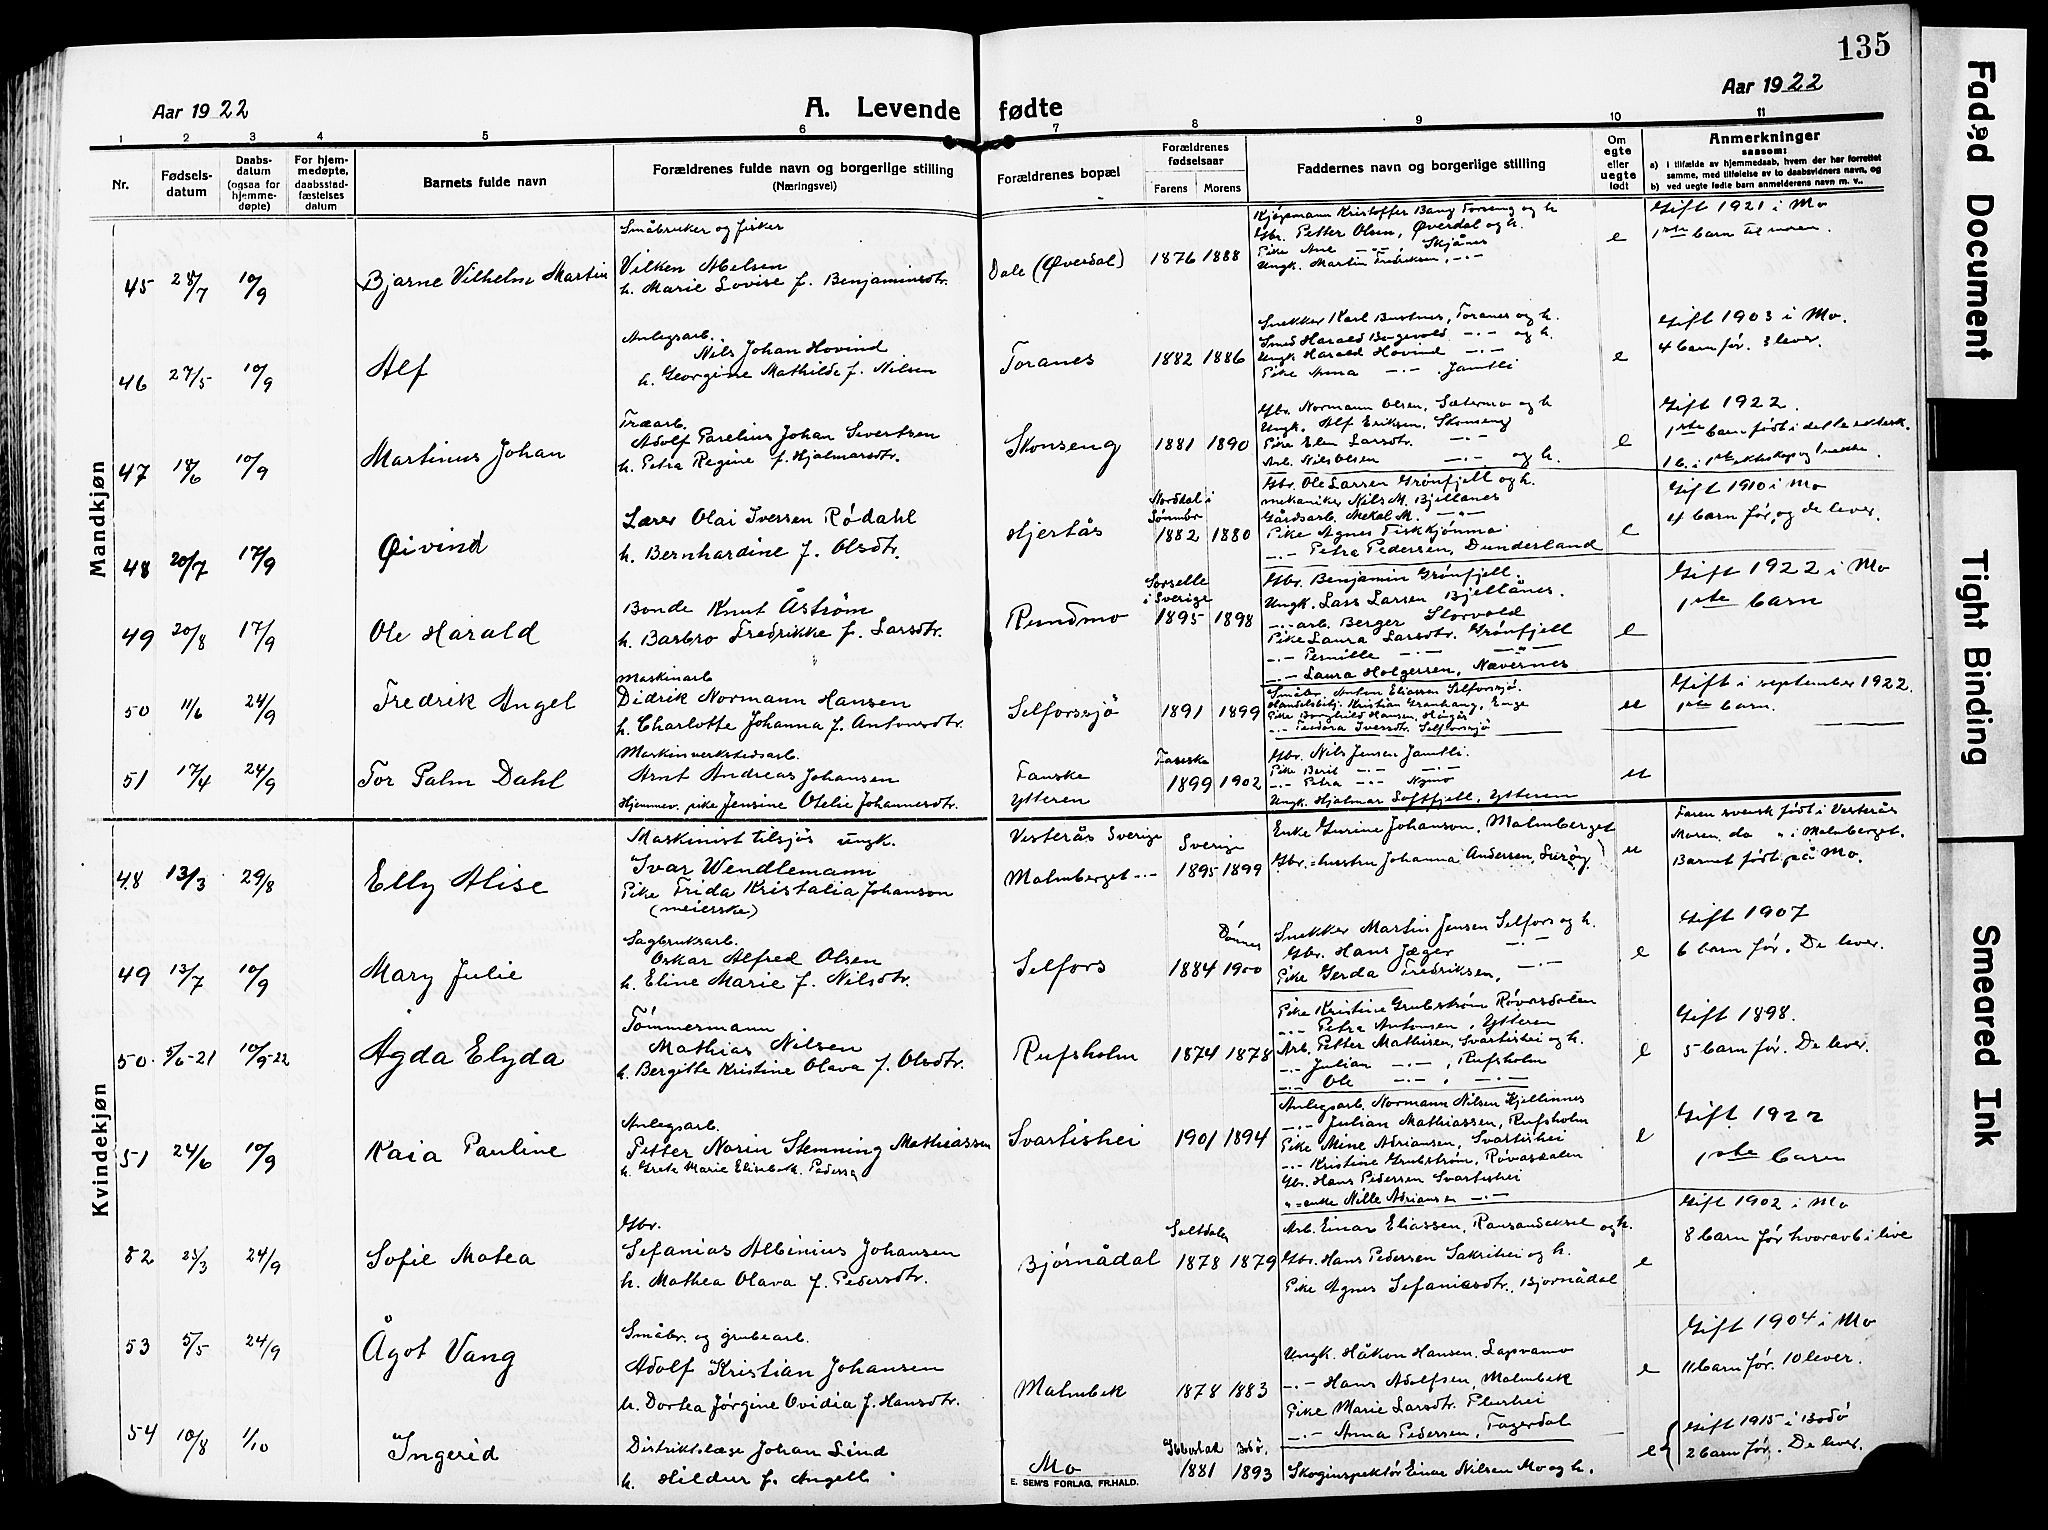 135
Aar 1922
A. Levende fødte
Aar 1922
1 2 3 4 5 6 7 8 9 10 11
Nr.
Fødsels-
datum
Daabs-
datum
(ogsaa for
hjemme-
døpte)
For hjem-
medøpte,
daabsstad-
fæstelses
datum
Barnets fulde navn
Forældrenes fulde navn og borgerlige stilling
(Næringsvei)
Forældrenes bopæl
Forældrenes
fødselsaar
Farens Morens
Faddernes navn og borgerlige stilling
Om
egte
eller
uegte
født
Anmerkninger
saasom:
a) I tilfælde av hjemmedaab, hvem der har forrettet
samme, med tilføielse av to daabsvidners navn, og
b) ved uegte fødte barn anmelderens navn m. v..
Mandkjøn
45 28/7 10/9 Bjarne Vilhelm Martin
Småbruker og fisker
Vilken Abelsen
h. Marie Lovise f. Benjaminsdtr.
Dale (Øverdal) 1876 1888
Kjøpmann Kristoffer Bang Forseng og h
Gbr. Petter Olsen, Øverdal og h.
Pike Ane -"- Skjånes
Ungk. Martin Fredriksen, -"-
e
Gift 1921 i Mo
1ste barn til moren.
46 27/5 10/9 Alf
Anlegsarb.
Nils Johan Hovind
h. Georgine Mathilde f. Nilsen
Toranes 1882 1886
Snekker Karl Bustnes, Toranes og h.
Smed Harald Bergevold -"- og h.
Ungk. Harald Hovind -"-
Pike Anna -"- Jamtli
e
Gift 1903 i Mo.
4 barn før. 3 lever.
47 18/6 10/9 Martinus Johan
Træarb.
Adolf Parelius Johan Sivertsen
h. Petra Regine f. Hjalmarsdtr.
Skonseng 1881 1890
Gbr. Normann Olsen, Sætermo og h
Ungk. Alf Eriksen, Skonseng
Pike Elen Larsdtr. -"-
Arb. Nils Olsen -"- og h.
e
Gift 1922.
1ste barn født i dette ektesk.
1 b. i 1ste ektskap og 1 uekte.
48 20/7 17/9 Øivind
Lærer Olai Iversen Rødahl
h. Bernhardine f. Olsdtr.
Hjertås
Norddal i
Sønmør
1882 1880
Gbr. Ole Larsen Grønfjell og h.
mekaniker Nils M. Bjellånes
Gårdsarb. Mekal M. -"-
Pike Agnes Fiskkjønmo
-"- Petra Pedersen, Dunderland
e
Gift 1910 i Mo
4 barn før, og de lever.
49 20/8 17/9 Ole Harald
Bonde Knut Åstrøm
h. Barbro Fredrikke f. Larsdtr.
Rundmo
Sorselle
i Sverige
1895 1898
Gbr. Benjamin Grønfjell.
Ungk. Lars Larsen Bjellånes.
-"- arb. Berger Storvold
Pike Laura Larsdtr. Grønfjell
-"- Pernille -"- -"-
-"- Laura Holgersen, Nævernes
e
Gift 1922 i Mo
1ste barn
50 11/6 24/9 Fredrik Angel
Maskinarb
Didrik Normann Hansen
h. Charlotte Johanna f. Antonsdtr.
Selforssjø 1891 1899
Småbr. Anton Eliassen Selforssjø.
Handelsbetj. Kristian Granhaug, Enge
Pike Borghild Hansen, Hågås
-"- Pedera Iversdtr. Selforssjø
u
Gift i september 1922.
1ste barn.
51 17/4 24/9 Tor Palm Dahl
Maskinverkstedsarb.
Arnt Andreas Johansen
Hjemmev. pike Jensine Otelie Johannesdtr.
Fauske
Ytteren
Fauske
1899 1902
Gbr. Nils Jensen Jamtli.
Pike Berit -"- -"-
-"- Petra -"- Nymo
Ungk. Hjalmar Loftfjell, Ytteren
u
Kvindekjøn
48 13/3 29/8 Elly Alise
Maskinist tilsjøs ungk.
Ivar Wendlemann
Pike Frida Kristalia Johanson
(meierske)
Vesterås Sverige
Malmberget -"-
Sverige
1895 1899
Enke Gurine Johanson, Malmberget
Gbr.-hustru Johanna Andersen,
u
Faren svensk født i Vesterås
Moren do " i Malmberget.
Barnet født på Mo.
49 13/7 10/9 Mary Julie
Sagbruksarb.
Oskar Alfred Olsen
h. Eline Marie f. Nilsdtr.
Selfors
Dønnes
1884 1900
Snekker Martin Jensen Selfors og h.
Gbr. Hans Jæger -"-
Pike Gerda Fredriksen, -"-
e
Gift 1907
6 barn før. De lever.
50. 5/6-21 10/9-22 Agda Elyda
Tømmermann
Mathias Nilsen
h. Bergitte Kristine Olava f. Olsdtr.
Rufsholm 1874 1878
Pike Kristine Grubstrøm Røvasdalen
-"- Petra Antonsen, Ytteren
Arb. Petter Mathisen, Svartishei og h.
-"- Julian -"-, Rufsholm
-"- Ole -"-, -"-
e
Gift 1898.
5 barn før. De lever.
51 24/6 10/9 Kaia Pauline
Anlegsarb.
Petter Norin Stemning Mathiassen
h. Grete Marie Elisebet f. Pedersd.
Svartishei 1901 1894
Anlegsarb. Normann Nilsen Kjellinnes
-"- Julian Mathiassen, Rufsholm
Pike Mine Adriansen, Svartishei
-"- Kristine Grubstrøm, Røvasdalen
Gbr. Hans Pedersen Svartishei
"-enke Nille Adriansen -"-
e
Gift 1922
1ste barn
52 23/3 24/9 Sofie Matea
Gbr.
Sefanias Albinius Johansen
h. Mathea Olava f. Pedersdtr.
Bjørnådal
Saltdalen
1878 1879
Arb. Einar Eliassen, Ransandeksel og h.
Gbr. Hans Pedersen Sakrihei og h.
Pike Agnes Sefaniasdtr. Bjørnådal
e
Gift 1902 i Mo
8 barn før hvorav 6 i live
53 5/5 24/9 Ågot Vang
Småbr. og grubearb.
Adolf Kristian Johansen
h. Dortea Jørgine Ovidia f. Hansdtr.
Malmbek 1878 1883
Ungk. Håkon Hansen, Lapvamo
-"- Hans Adolfsen, Malmbek
Pike Marie Larsdtr. Plurhei
-"- Anna Pedersen, Fagerdal
e
Gift 1904 i Mo
11 barn før. 10 lever.
54 10/8 1/10 Ingerid
Distriktslæge Johan Lind
h. Hildur f. Angell
Mo
Ibbestad Bodø.
1881 1893
Skoginspektør Einar Nilsen Mo og h.
e
Gift 1915 i Bodø
2 barn før. De lever.
E. SEM'S FORLAG, FR.HALD.
Faded Document
Tight Binding
Smeared Ink